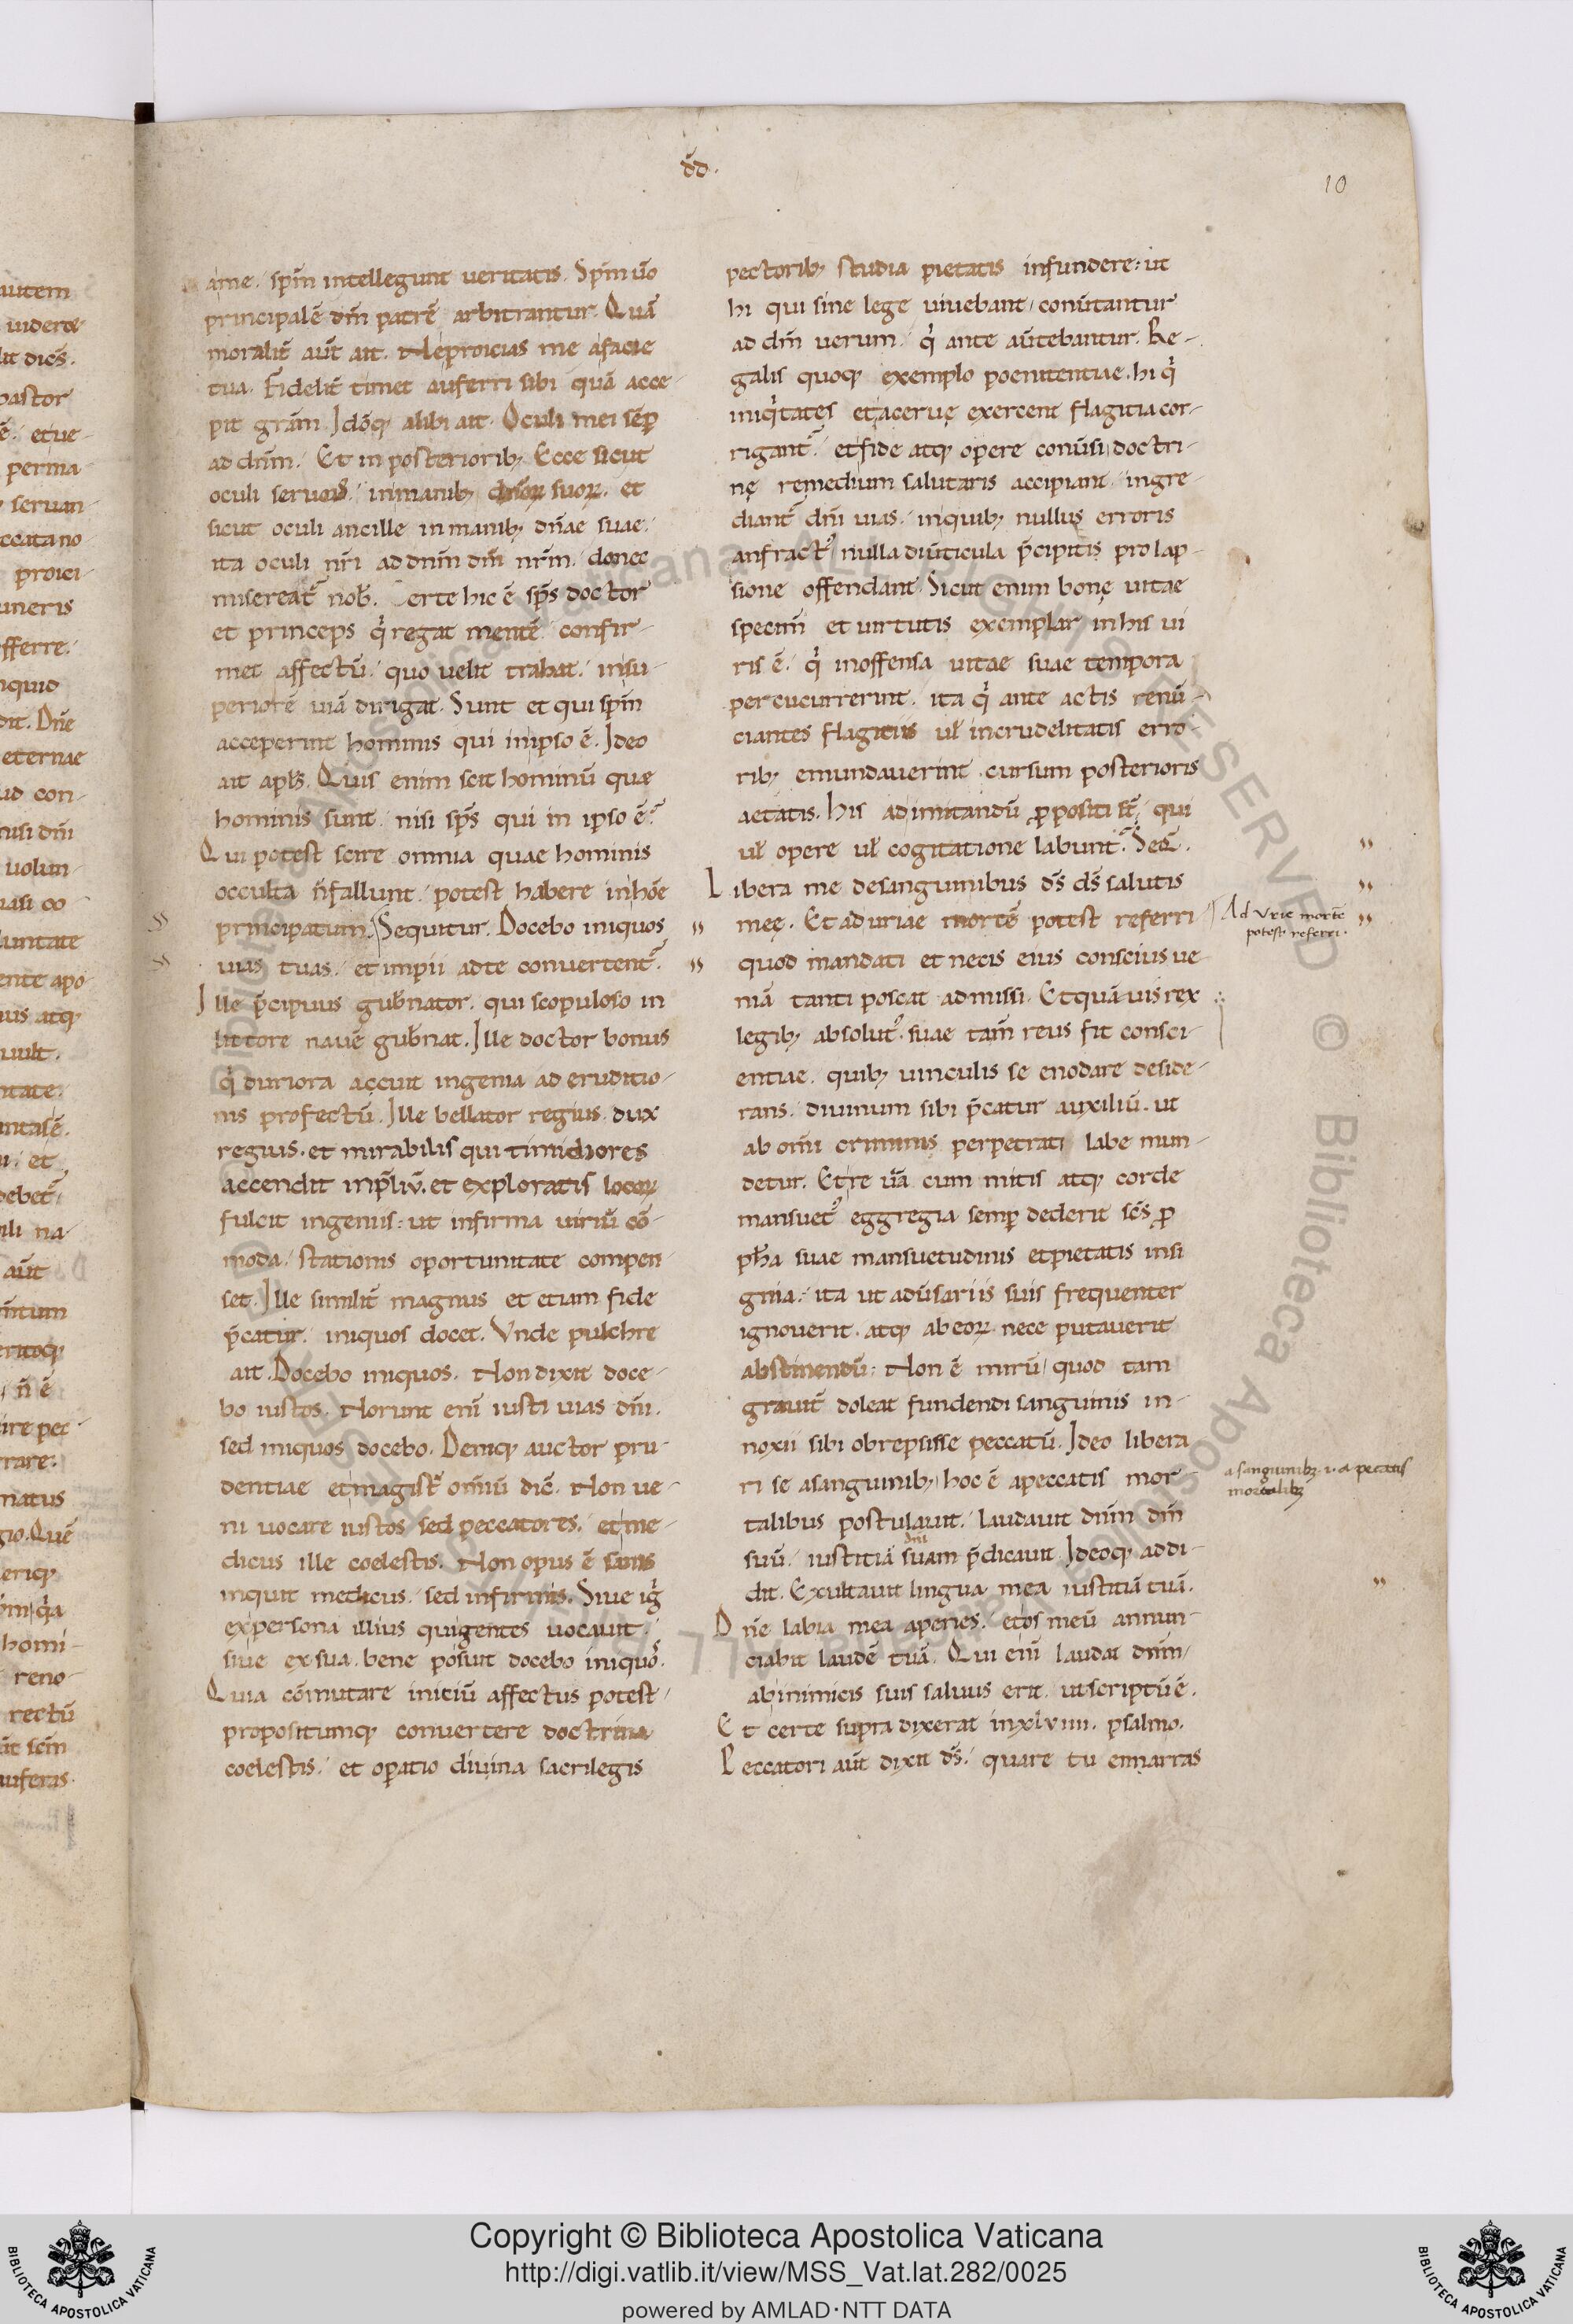 dd̄.
10
ame. spm̄ intellegunt ueritatis. Spm̄ ũo
principalē dm̄ patrē arbitrantur. Quā
moralit̃ aut̃ ait. Ne proicias me a facie
tua. Fidelit̃ timet auferri sibi quā acce-
pit gr̄am. Idōq; alibi ait. Oculi mei sēp
ad dn̄m. Et in posteriorib; Ecce sicut
oculi seruoꝝ. in manib; dn̄oꝝ suoꝝ. et
sicut oculi ancille in manib; dn̄ae suae.
ita oculi nr̄i ad dn̄m dm̄ nr̄m. donec
misereat᷑ nob̄. Certe hic ē sp̄s doctor
et princeps qͥ regat mentē. confir-
met affectū. quo uelit trahat. in su-
periorē uiā dirigat. Sunt et qui spm̄
acceperint hominis qui in ipso ē. Ideo
ait apl̄s. Quis enim scit hominū quę
hominis sunt nisi sp̄s qui in ipso ē?
Qui potest scire omnia quae hominis
occulta n̄ fallunt. potest habere in hōe
principatum. Sequitur. Docebo iniquos
uias tuas. et impii ad te convertent᷑.
Ille p̄cipuus gub̄nator. qui scopuloso in
littore nauē gub̄nat. Ille doctor bonus
qͥ duriora acuit ingenia ad eruditio-
nis profectū. Ille bellator regius. dux
reguis. et mirabilis qui timidiores
accendit in p̄liū. et exploratis locoꝝ
fulcit ingeniis: ut infirma uiriū cō-
moda. stationis oportunitate compen-
set. Ille similit̃ magnus et etiam fide
p̄catur. iniquos docet. Vnde pulchre
ait. Docebo iniquos. Non dixit doce-
bo iustos. Norunt enī iusti uias dn̄i.
sed iniquos docebo. Deniq; auctor pru-
dentiae et magist̃ om̄iū dic̄. Non ue-
ni uocare iustos sed peccatores. et me-
dicus ille coelestis. Non opus ē sanis
inquit medicus. sed infirmis. Siue igͥ
ex persona illius qui gentes uocauit.
siue ex sua. bene posuit docebo iniquos.
Quia cōmutare initiū affectus potest
propositumq; convertere doctrina
coelestis. et oꝑatio diuina sacrilegis
pectorib; studia pietatis infundere: ut
hi qui sine lege uiuebant, conũtantur
ad dm̄ uerum. qͥ ante aũtebantur. Re-
galis quoq; exemplo poenitentiae. hi qͥ
iniqͥtatęs et aceruę exercent flagitia cor-
rigant᷑. et fide atq; opere conũsi, doctri-
nę remedium salutaris accipiant. ingre-
diant᷑ dn̄i uias. in quib; nullus erroris
anfract᷒ nulla diũticula p̄cipitis prolap-
sione offendant. Sicut enim bonę uitae
specim̄ et uirtutis exemplar in his ui
ris ē. qͥ inoffensa uitae suae tempora
percucurrerint. ita qͥ ante actis renū-
ciantes flagitiis ul̄ in crudelitatis erro-
rib; emundauerint cursum posterioris
aetatis. his ad imitandū ꝓpositi st̄. qui
ul̄ opere ul̄ cogitatione labunt᷑. Seq̄.
Libera me de sanguinibus d̄s d̄s salutis
meę. Et ad uriae mortē potest referri
quod mandati et necis eius conscius ue
niā tanti poscat admissi. Et quāuis rex
legib; absolut᷒. suae tam̄ reus fit consci-
entiae. quib; uinculis se enodare deside-
rans. diuinum sibi p̄catur auxiliū. ut
ab om̄i criminis perpetrati labe mun-
detur. Et re ũa cum mitis atq; corde
mansuet᷒ eggregia semꝑ dederit sc̄s ꝓ
ph̄a suae mansuetudinis et pietatis insi
gnia. ita ut adũsariis suis frequenter
ignouerit. atq; ab eoꝝ nece putauerit
abstinendū: Non ē mirū, quod tam
grauit̃ doleat fundendi sanguinis in-
noxii sibi obrepsisse peccatū. Ideo libera
ri se a sanguinib; hoc ē a peccatis mor-
talibus postulauit. laudauit dn̄m dm̄
suū. iustitiā suam p̄dicauit Ideoq; addi-
dn̄i
dit. Exultauit lingua mea iustitiā tuā.
Dn̄e labia mea aperies. et os meū annun-
ciabit laudē tuā. Qui enī laudat dn̄m
ab inimicis suis saluus erit. ut scriptū ē.
Et certe supra dixerat in xlviiii. psalmo.
Peccatori aut̃ dixit d̄s. quare tu enarras
Ad Vrie mortē
potest referri.
a sanguinib; .i. a peccatis
mortalib;
Copyright © Biblioteca Apostolica Vaticana
http://digi.vatlib.it/view/MSS_Vat.lat.282/0025
powered by AMLAD·NTT DATA
BIBLIOTECA APOSTOLICA VATICANA
BIBLIOTECA APOSTOLICA VATICANA